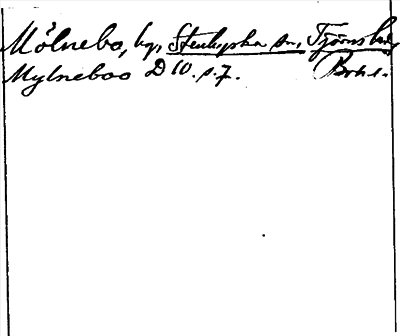 Mölnebo, by, Stenkyrka sn, Tjörns hd,
Mylneboo D 10. s. 7. Boh l.